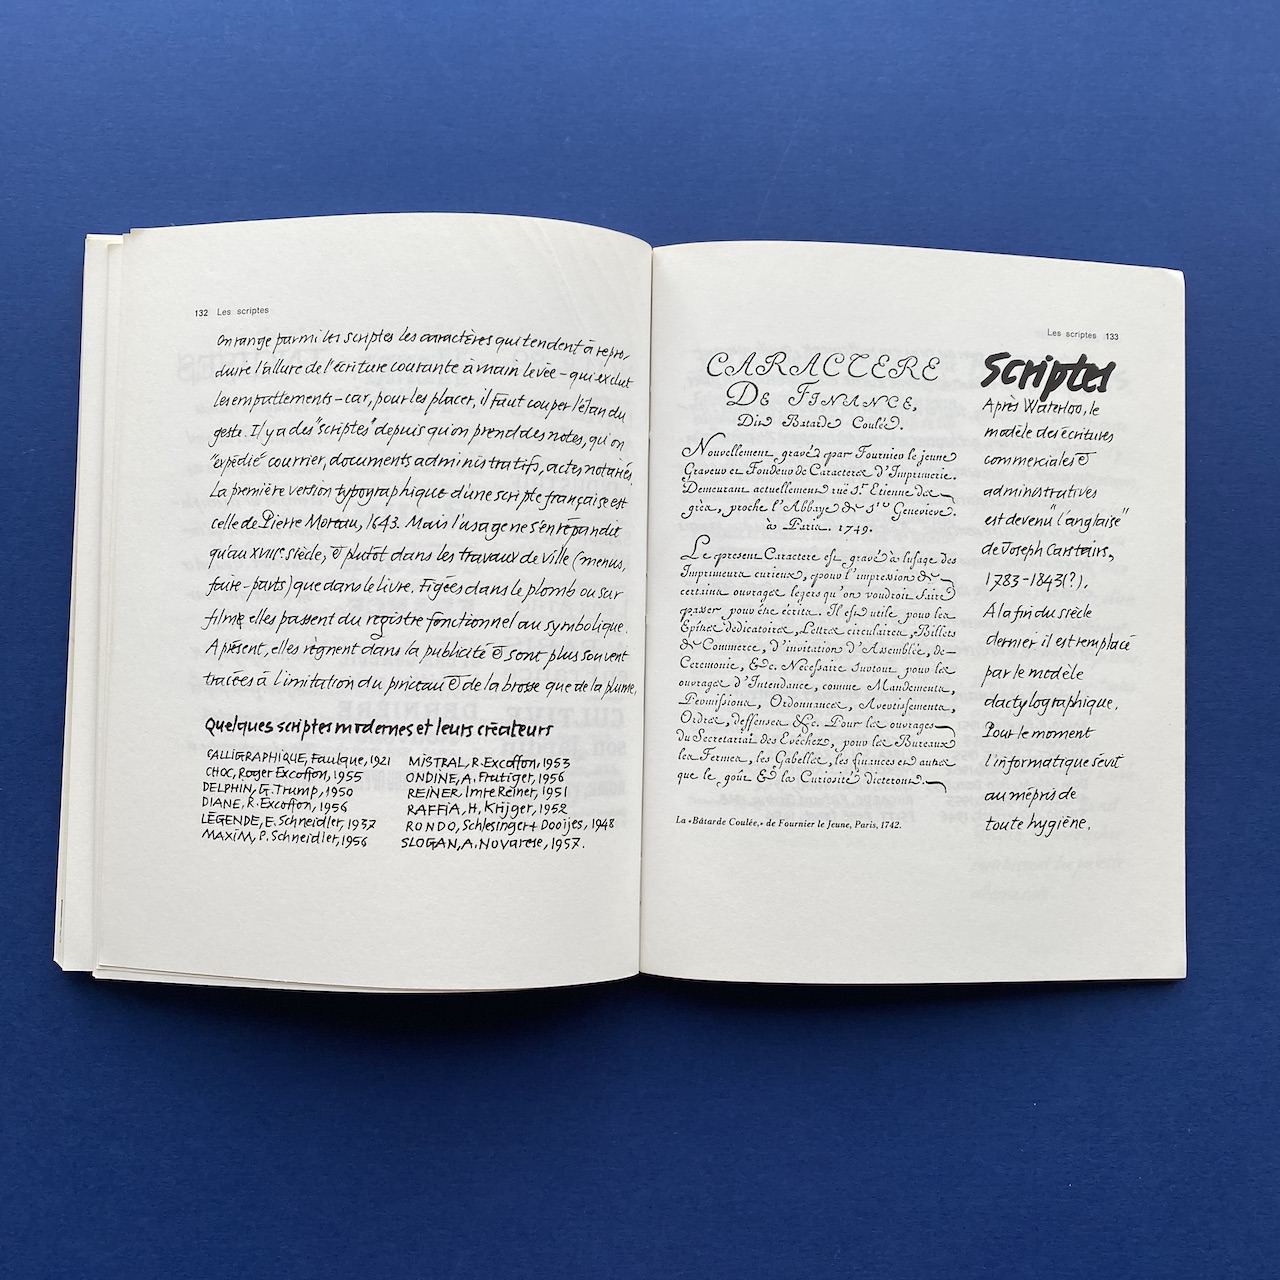 132 Les scriptes
On range parmi les scriptes les caractères qui tendent à repro-
duire l'allure de l'écriture courante à main levée – qui exclut
les empattements – car, pour les placer, il faut couper l'élan du
geste. Il y a des "scriptes" depuis qu'on prend des notes, qu'on
"expédie" courrier, documents administratifs, actes notariés.
La première version typographique d'une scripte française est
celle de Pierre Moreau, 1643. Mais l'usage ne s'en répandit
qu'au XVIIIe siècle, & plutôt dans les travaux de ville (menus,
faire-parts) que dans le livre. Figées dans le plomb ou sur
film, elles passent du registre fonctionnel au symbolique.
A présent, elles règnent dans la publicité & sont plus souvent
tracées à l'imitation du pinceau & de la brosse que de la plume.
Quelques scriptes modernes et leurs créateurs
CALLIGRAPHIQUE, Faulque, 1921
CHOC, Roger Excoffon, 1955
DELPHIN, G. Trump, 1950
DIANE, R. Excoffon, 1956
LÉGENDE, E. Schneidler, 1937
MAXIM, P. Schneidler, 1956
MISTRAL, R. Excoffon, 1953
ONDINE, A. Frutiger, 1956
REINER, Imre Reiner, 1951
RAFFIA, H. Krijger, 1952
RONDO, Schlesinger + Dooijes, 1948
SLOGAN, A. Novarese, 1957.
Les scriptes 133
CARACTERE
DE FINANCE,
Dit Batarde Coulée.
Nouvellement gravé par Fournier le jeune
Graveur et Fondeur de Caracteres d'Imprimerie.
Demeurant actuellement ruë St. Etienne des
grès, proche l'Abbaye de Ste Genevieve.
à Paris. 1749.
Le present Caractere est gravé à l'usage des
Imprimeurs curieux, pour l'impression de
certains ouvrages legers qu'on voudroit faire
passer pour être écrits. Il est utile pour les
Epitres dedicatoires, Lettres circulaires, Billets
de Commerce, d'invitation d'Assemblée, de
Ceremonie, &c. Necessaire surtout pour les
ouvrages d'Intendance, comme Mandements,
Permissions, Ordonnances, Avertissements,
Ordres, deffenses &c. Pour les ouvrages
du Secretariat des Evêchez, pour les Bureaux
des Fermes, les Gabelles, les finances et autres
que le goût & la Curiosité dicteront.
La «Bâtarde Coulée,» de Fournier le Jeune, Paris, 1742.
Scriptes
Après Waterloo, le
modèle des écritures
commerciales &
administratives
est devenu "l'anglaise"
de Joseph Carstairs,
1783-1843(?).
A la fin du siècle
dernier il est remplacé
par le modèle
dactylographique.
Pour le moment
l'informatique sévit
au mépris de
toute hygiène.